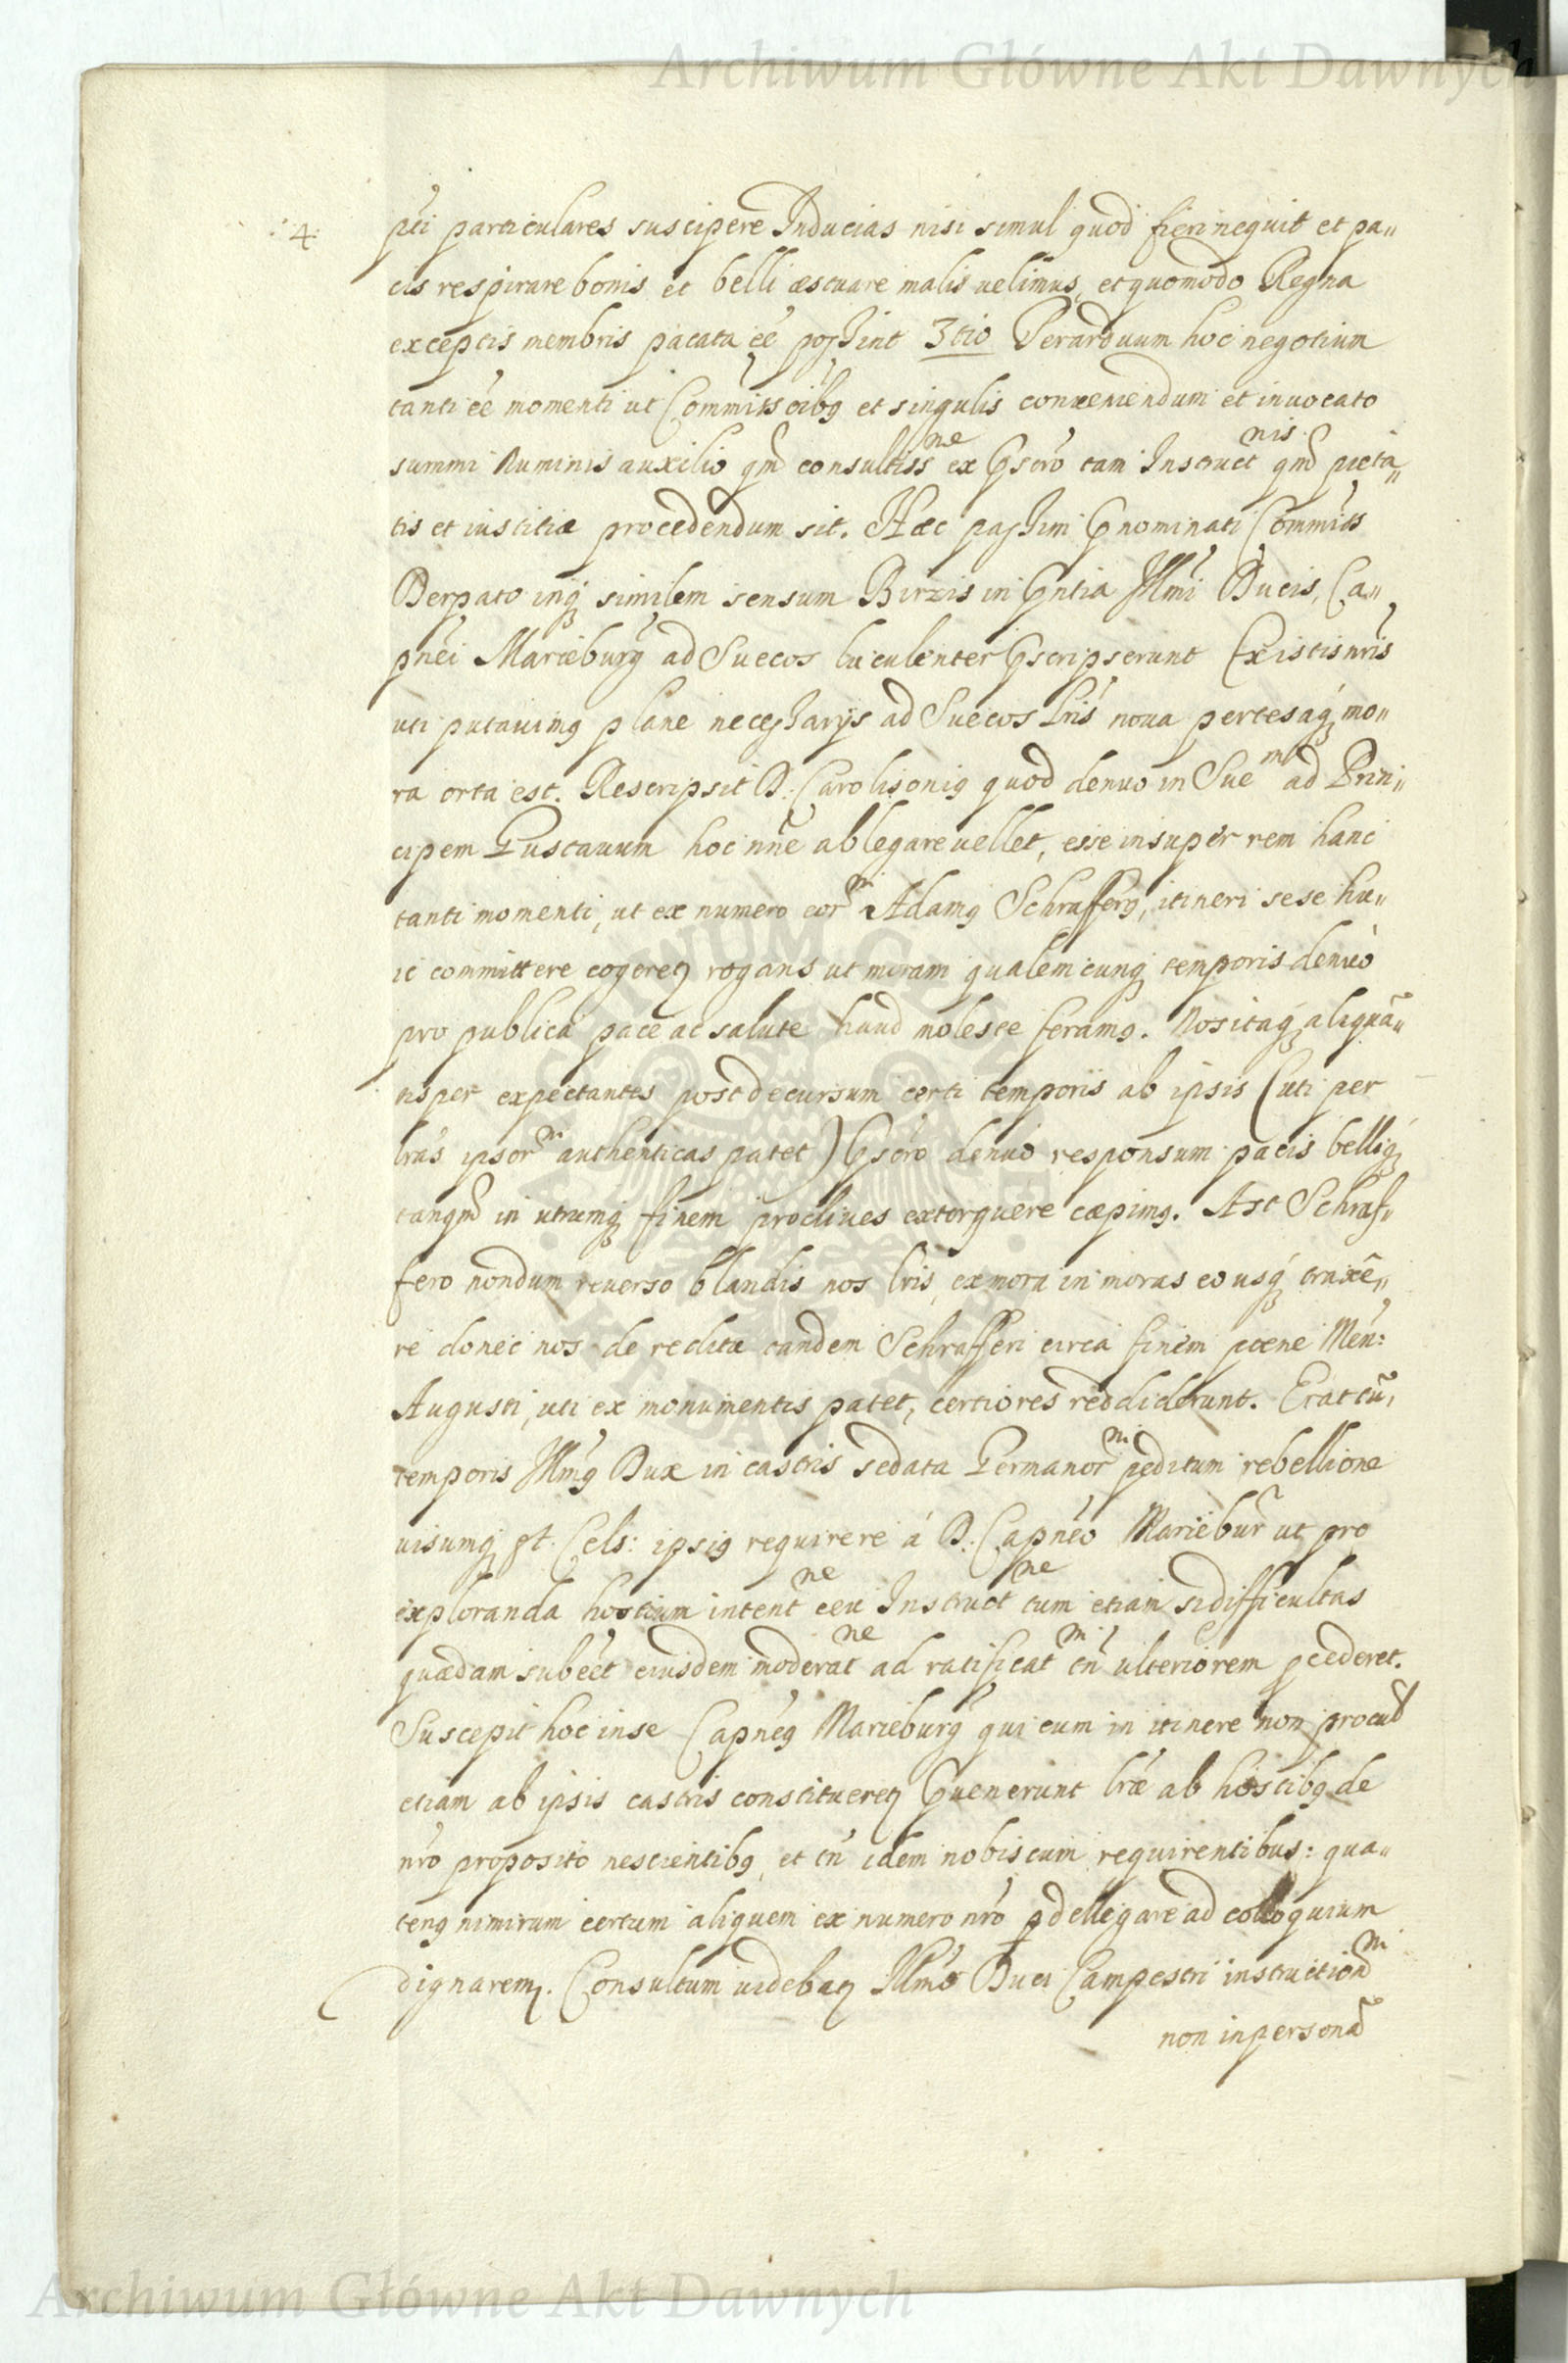 Archiwum Główne Akt Dawnych
4.
pti particulares suscipere Inducias nisi simul quod fieri nequit et pa„
cis respirare bonis et belli æstuare malis uelimus, et quomodo Regna
exceptis membris pacata eé possint 3tio Perarduum hoc negotium
tanti eé momenti ut Commiss oibq et singulis conueniendum et inuocato
summi Numinis auxilio qm consultissne ex Pscro tam Instructnis qm pieta„
tis et iustitiæ procedendum sit. Hæc passim Pnominati Commiss
Derpato inq similem sensum Birzis in Pntia Illmi Ducis, Ca„
pnei Marieburg ad Suecos luculenter Pscripserunt Existis nris
uti putauimq plane necessarijs ad Suecos Lris noua pertesaq mo„
ra orta est. Rescripsit D: Carolisoniq quod denuo in Suem ad Prin„
cipem Gustauum hoc nne ablegare uellet, esse insuper rem hanc
tanti momenti, ut ex numero eorm Adamq Schrafferq, itineri sese hu„
ic committere cogeretꝫ rogans ut moram qualemcunq temporis denuò
pro publica pace ac salute haud moleste feramq. Nos itaq aliquã„
tisper expectantes post decursum certi temporis ab ipsis (uti per
lras ipsorm authenticas patet) Pscro denuò responsum pacis belliq
tanqm in utrumq finem procliues extorquere cæpimq. Ast Schraf„
fero nondum reuerso blandis nos lris, ex mora in moras eo usq traxẽ„
re donec nos de reditu tandem Schrafferi circa finem pene Men:
Augusti, uti ex monumentis patet, certiores reddiderunt. Erat tũ,
temporis Illmq Dux in castris sedata Germanorm peditum rebellione
uisumq st. Cels: ipsiq requirere á D: Capneo Marieburg ut pro
exploranda hostium intentne ceu Instructne tum etiam si difficultas
quædam subeet eiusdem moderatne ad ratificatm tn ulteriorem pcederet.
Suscepit hoc in se Capneq Marieburg qui cum in itinere non procul
etiam ab ipsis castris constitueretꝫ Puenerunt lræ ab hostibq de
nro proposito nescientibq, et tn idem nobiscum requirentibus: qua„
tenq nimirum certum aliquem ex numero nro pdellegare ad colloquium
dignaremꝫ. Consultum uidebatꝫ Illmo Duci Campestri instructionm
non in persona
Archiwum Główne Akt Dawnych